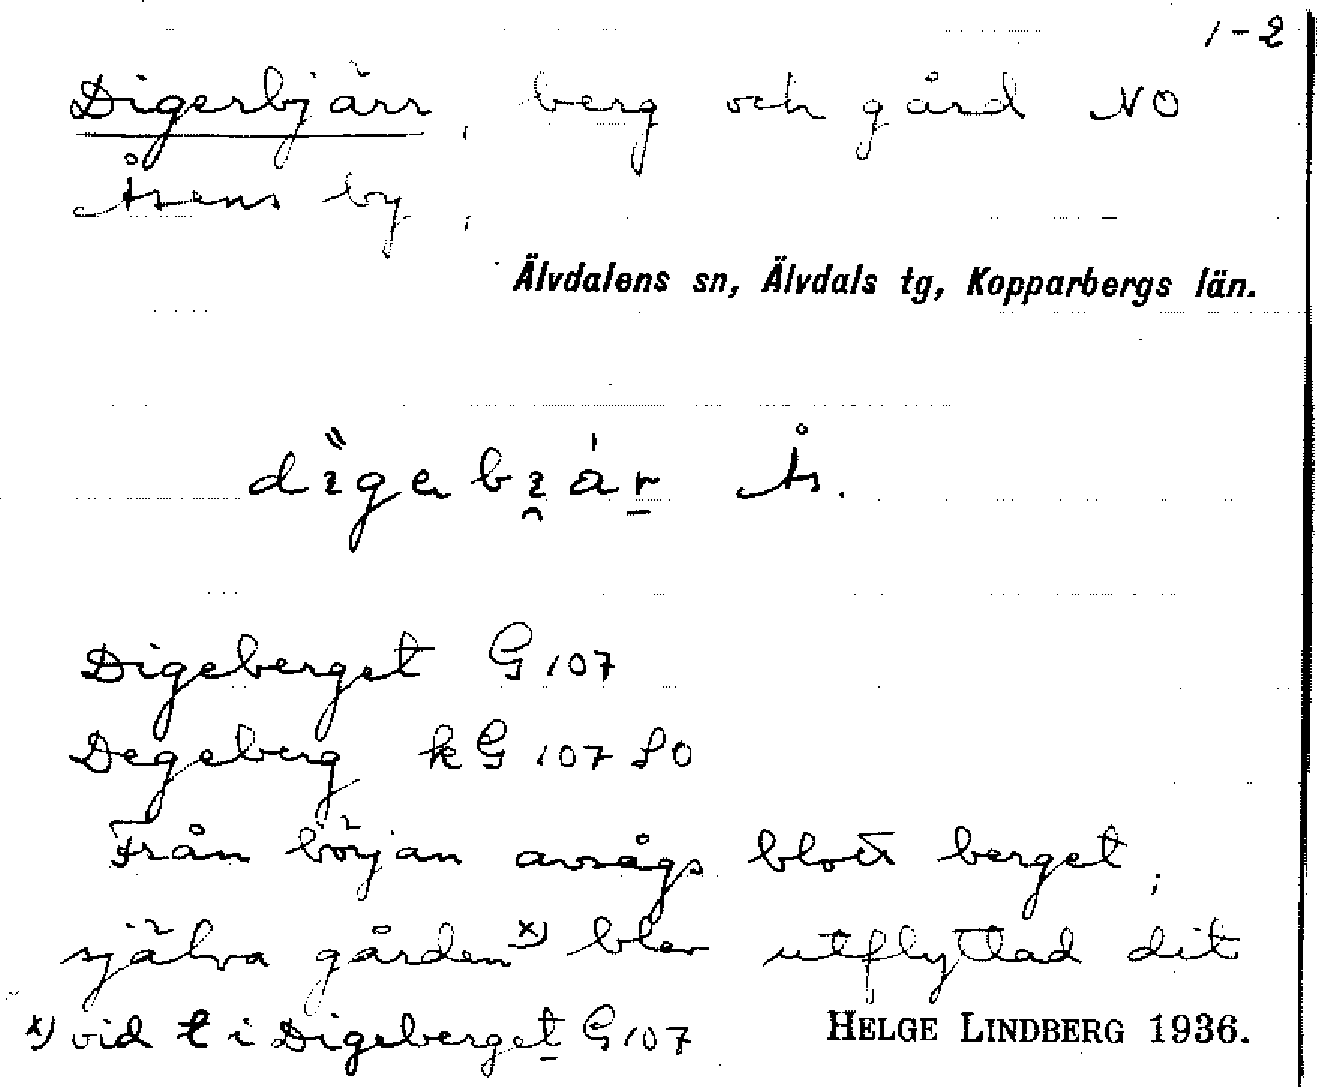 1-2
Digerbjärr, berg och gård NO
Åsens by,
Älvdalens sn, Älvdals tg, Kopparbergs län.
Ås.
Digeberget G 107
Degeberg kG 107 SO
Från början avsågs blott berget,
själva gården x) blev utflyttad dit
x) vid t i Digeberget G 107
HELGE LINDBERG 1936.